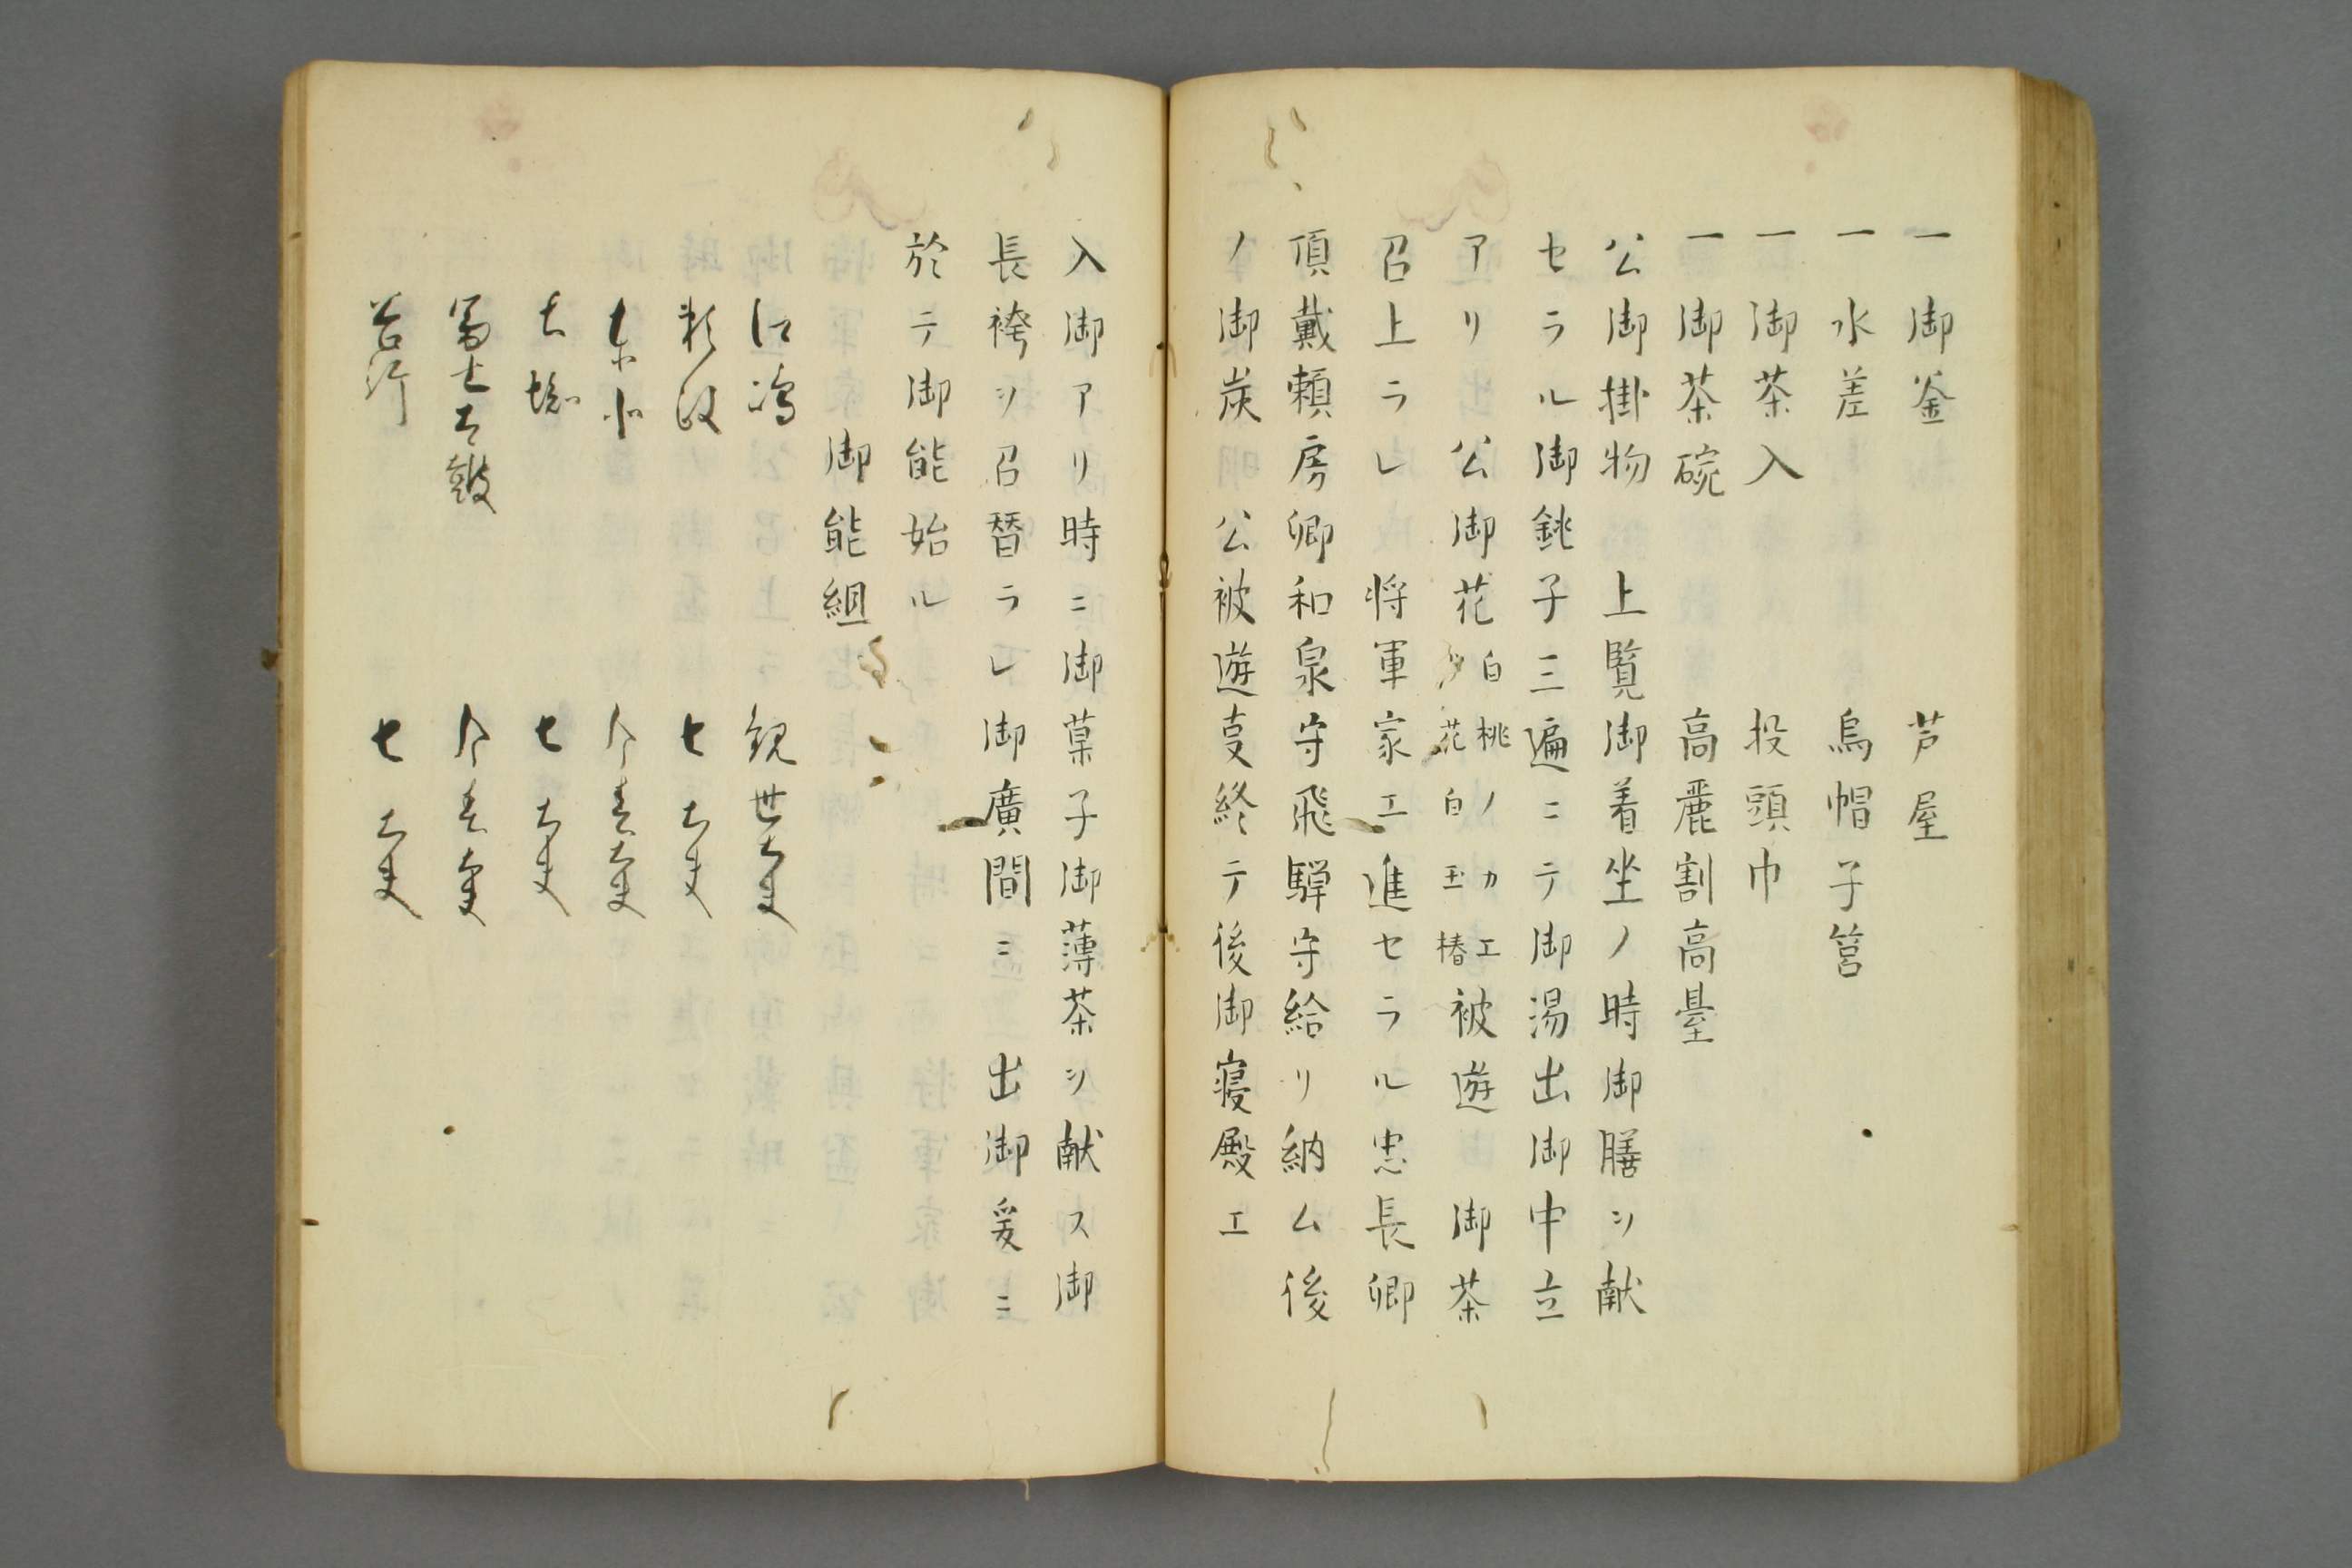 一御釜　芦屋
一水差　烏帽子筥
一御茶入　投頭巾
一御茶碗　高麗割高臺
公御掛物　上覧御着坐ノ時御膳ヲ献
セラル御銚子三遍ニテ御湯出御中立
アリ　公御花
白桃ノカエ
花白玉椿
被遊　御茶
召上ラレ　将軍家エ進セラル忠長卿
頂戴頼房卿和泉守飛騨守給リ納ム後
ノ御炭　公被遊㕝終テ後御寝殿エ
入御アリ時ニ御菓子御薄茶ヲ献ス御
長袴ヲ召替ラレ御廣間ニ　出御爰ニ
於テ御能始ル
御能組
江嶋　観世大夫
七大夫
東北　今春大夫
七大夫
冨士太鼓　今春大夫
七大夫